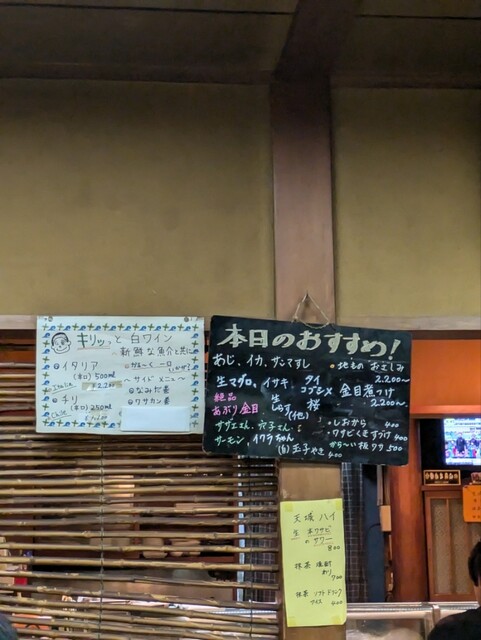 キリッと白ワイン
新鮮な魚介と共に
イタリア
(辛口) 500ml
チリ
(辛口) 250ml
サイドメニュー
なみだ巻
ワサカン巻
本日のおすすめ!
あじ、イカ、サンマすし
地もの おさしみ
2,200〜
生マグロ、イサキ、タイ
コブシメ
金目煮つけ
2,200〜
絶品
あぶり金目
生しらす
桜
(他)
サザエさん、穴子さん、
しおから 400
ワサビくきづけ 400
サーモン、イクラちゃん
から〜い板ワサ 500
(自)玉子やき
400
天城ハイ
生本ワサビ
のサワー
800
抹茶焼酎
わり
700
抹茶ソフトドリンク
アイス 400